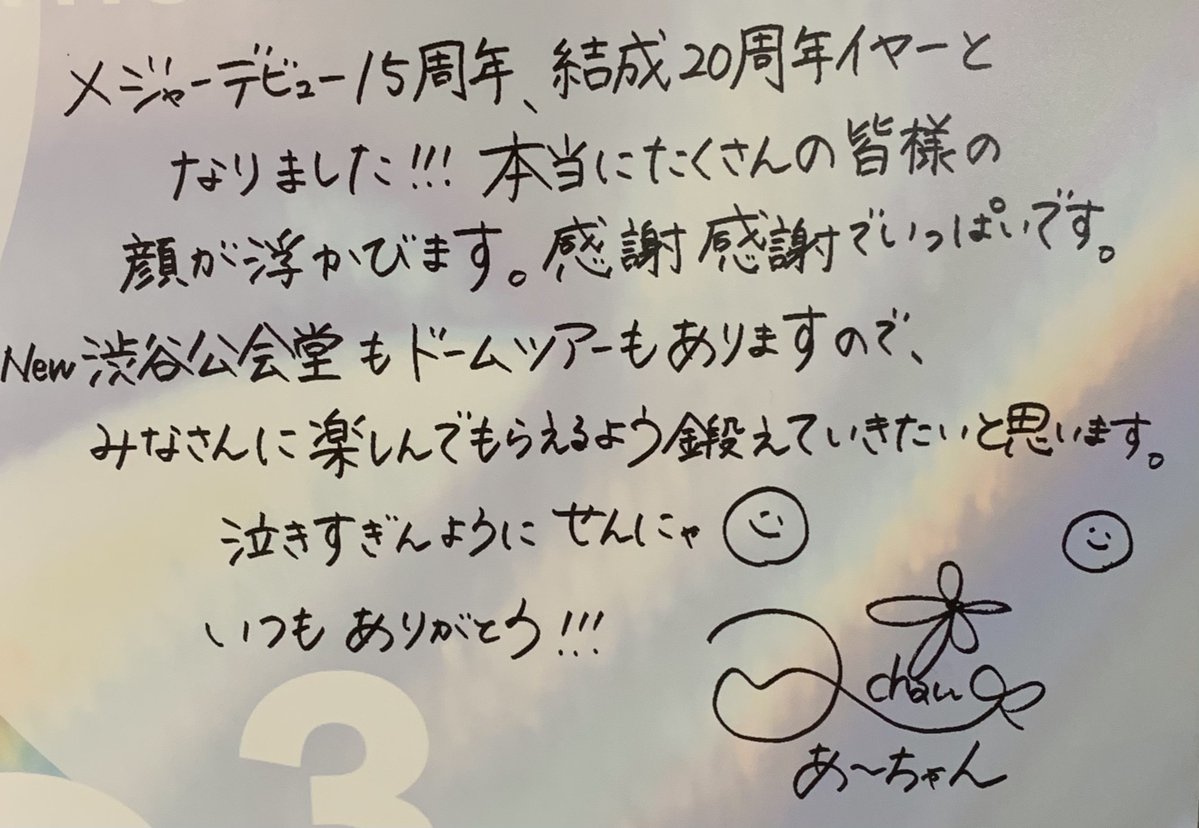 メジャーデビュー15周年、結成20周年イヤーと
なりました!!! 本当にたくさんの皆様の
顔が浮かびます。感謝感謝でいっぱいです。
New渋谷公会堂もドームツアーもありますので、
みなさんに楽しんでもらえるよう鍛えていきたいと思います。
泣きすぎんようにせんにゃ
いつもありがとう!!!
chan
あ〜ちゃん
3